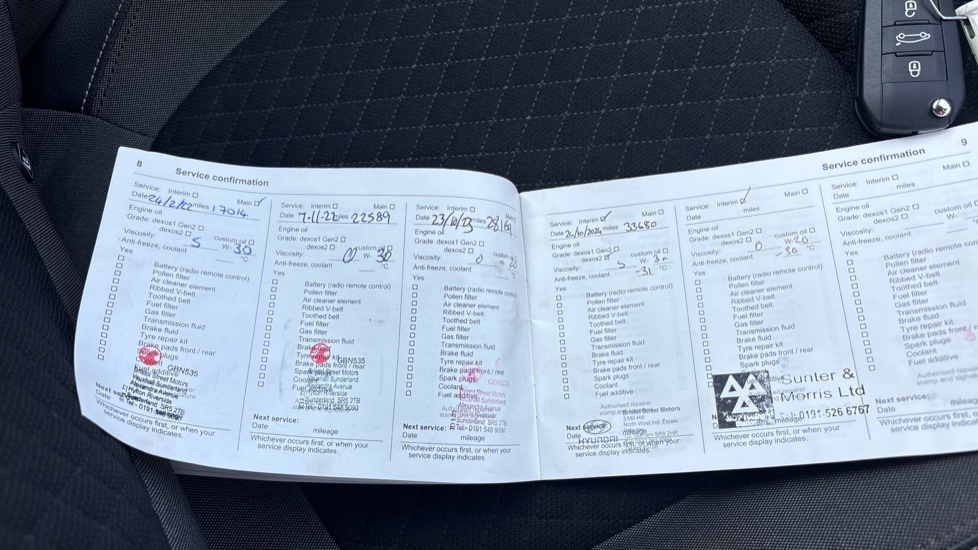 8
Service confirmation
Service: Interim ☐ Main ☑
Date 24/2/22 miles 17014
Engine oil
Grade: dexos1 Gen2 ☐
dexos2 ☐ custom oil ☐
Viscosity: 5 W- 30
Anti-freeze, coolant °C
Yes
☐ Battery (radio remote control)
☐ Pollen filter
☐ Air cleaner element
☐ Ribbed V-belt
☐ Toothed belt
☐ Fuel filter
☐ Gas filter
☐ Transmission fluid
☐ Brake fluid
☐ Tyre repair kit
☐ Brake pads front / rear
plugs
GBN535
Fuel additive
Bristol Street Motors
Vauxhall Sunderland
Alexandra Avenue
Hylton Riverside
Sunderland SR5 2TB
0191 548 9090
Next
Date
Whichever occurs first, or when your
service display indicates.
Service: Interim ☐ Main ☑
Date 7-11-22 miles 22589
Engine oil
Grade: dexos1 Gen2 ☐
dexos2 ☐ custom oil ☐
Viscosity: 0 W- 30
Anti-freeze, coolant °C
Yes
☐ Battery (radio remote control)
☐ Pollen filter
☐ Air cleaner element
☐ Ribbed V-belt
☐ Toothed belt
☐ Fuel filter
☐ Gas filter
☐ Transmission fluid
☐ Brake
☐ Tyre kit
☐ Brake pads front / rear
GBN535
Sunderland
Alexandra Avenue
Riverside
SR5 2TB
0191 548 9090
Next service:
Date mileage
Whichever occurs first, or when your
service display indicates.
Service: Interim ☐ Main
Date 23/10/23 miles
Engine oil
Grade: dexos1 Gen2 ☐
dexos2 ☐ custom
Viscosity: 0
Anti-freeze, coolant
Yes
☐ Battery (radio remote
☐ Pollen filter
☐ Air cleaner element
☐ Ribbed V-belt
☐ Toothed belt
☐ Fuel filter
☐ Gas filter
☐ Transmission fluid
☐ Brake fluid
☐ Tyre repair kit
☐ Brake pads front / rear
☐ Spark plugs
☐ Coolant
☐ Fuel additive
Sunderland SR5 2TB
Tel: 0191 548 9090
Next service:
Date mileage
Whichever occurs first, or when your
service display indicates.
Service confirmation
9
Service: Interim ☑ Main ☐
Date 21/10/2024 miles 33650
Engine oil
Grade: dexos1 Gen2 ☐
dexos2 ☐ custom oil ☐
Viscosity: 5 W- 30
Anti-freeze, coolant -31 °C
Yes
☐ Battery (radio remote control)
☐ Pollen filter
☐ Air cleaner element
☐ Ribbed V-belt
☐ Toothed belt
☐ Fuel filter
☐ Gas filter
☐ Transmission fluid
☐ Brake fluid
☐ Tyre repair kit
☐ Brake pads front / rear
☐ Spark plugs
☐ Coolant
☐ Fuel additive
Authorised repairer
Bristol Street Motors
Next service:
Date mileage
HYUNDAI
Whichever occurs first, or when your
service display indicates.
Service: Interim ☑ Main ☐
Date miles
Engine oil
Grade: dexos1 Gen2 ☐
dexos2 ☐ custom oil ☐
Viscosity: 0 W- 20
Anti-freeze, coolant -30 °C
Yes
☐ Battery (radio remote control)
☐ Pollen filter
☐ Air cleaner element
☐ Ribbed V-belt
☐ Toothed belt
☐ Fuel filter
☐ Gas filter
☐ Transmission fluid
☐ Brake fluid
☐ Tyre repair kit
☐ Brake pads front / rear
☐ Spark plugs
Sunter &
Morris Ltd
Tel: 0191-526 6767
mileage
Whichever occurs first, or when your
service display indicates.
Service: Interim ☐ Main ☐
Date miles
Engine oil
Grade: dexos1 Gen2 ☐
dexos2 ☐ custom oil
Viscosity: W-
Anti-freeze, coolant
Yes
☐ Battery (radio remote
☐ Pollen filter
☐ Air cleaner element
☐ Ribbed V-belt
☐ Toothed belt
☐ Fuel filter
☐ Gas filter
☐ Transmission fluid
☐ Brake fluid
☐ Tyre repair kit
☐ Brake pads front
☐ Spark plugs
☐ Coolant
☐ Fuel additive
Authorised
stamp and
Next service:
Date mileage
Whichever occurs first, or
service display indicates.